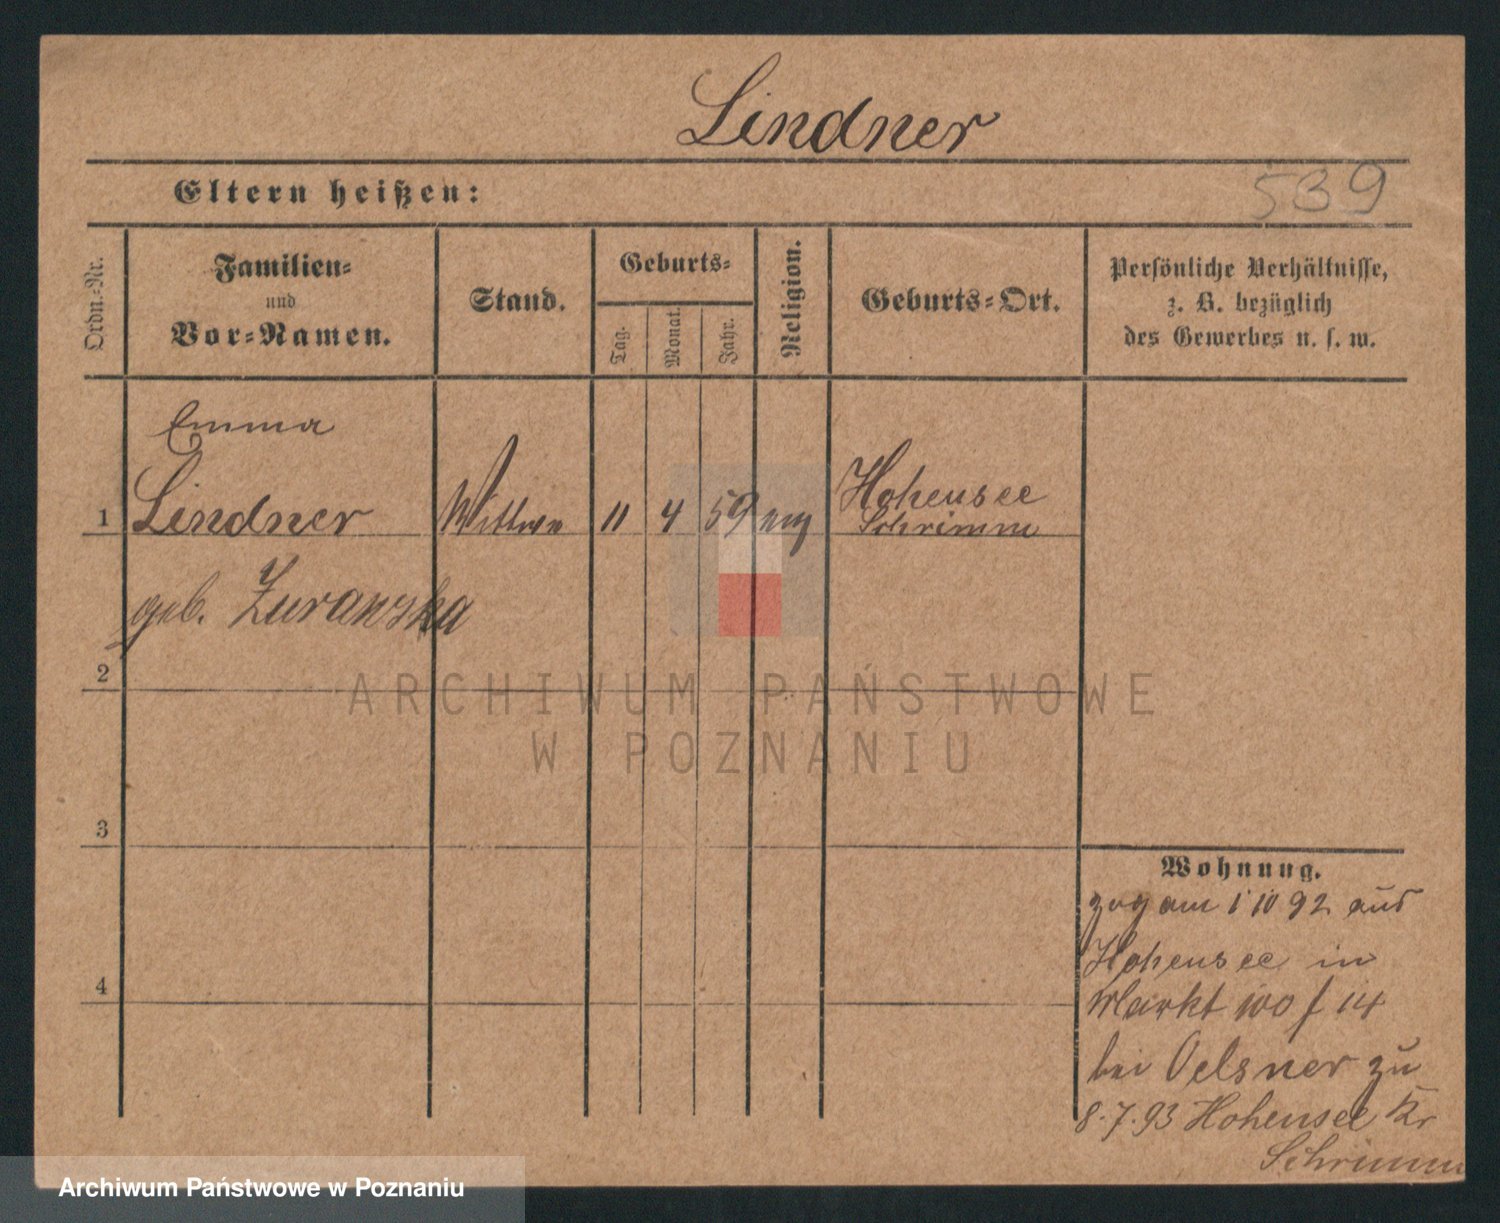 Lindner
Eltern heißen:
539
Ordn.-Nr.
Familien-
und
Vor-Namen.
Stand.
Geburts-
Tag.
Monat.
Jahr.
Religion.
Geburts-Ort.
Persönliche Verhältnisse,
z. B. bezüglich
des Gewerbes u. s. w.
Emma
1 Lindner Wittwe 11 4 59 evg Hohensee
Schrimm
geb. Zuranska
2
3
4
Wohnung.
zog am 1 10 92 aus
Hohensee in
Markt 100 f 14
bei Oelsner zu
8.7.93 Hohensee Kr
Schrimm
ARCHIWUM PAŃSTWOWE
W POZNANIU
Archiwum Państwowe w Poznaniu